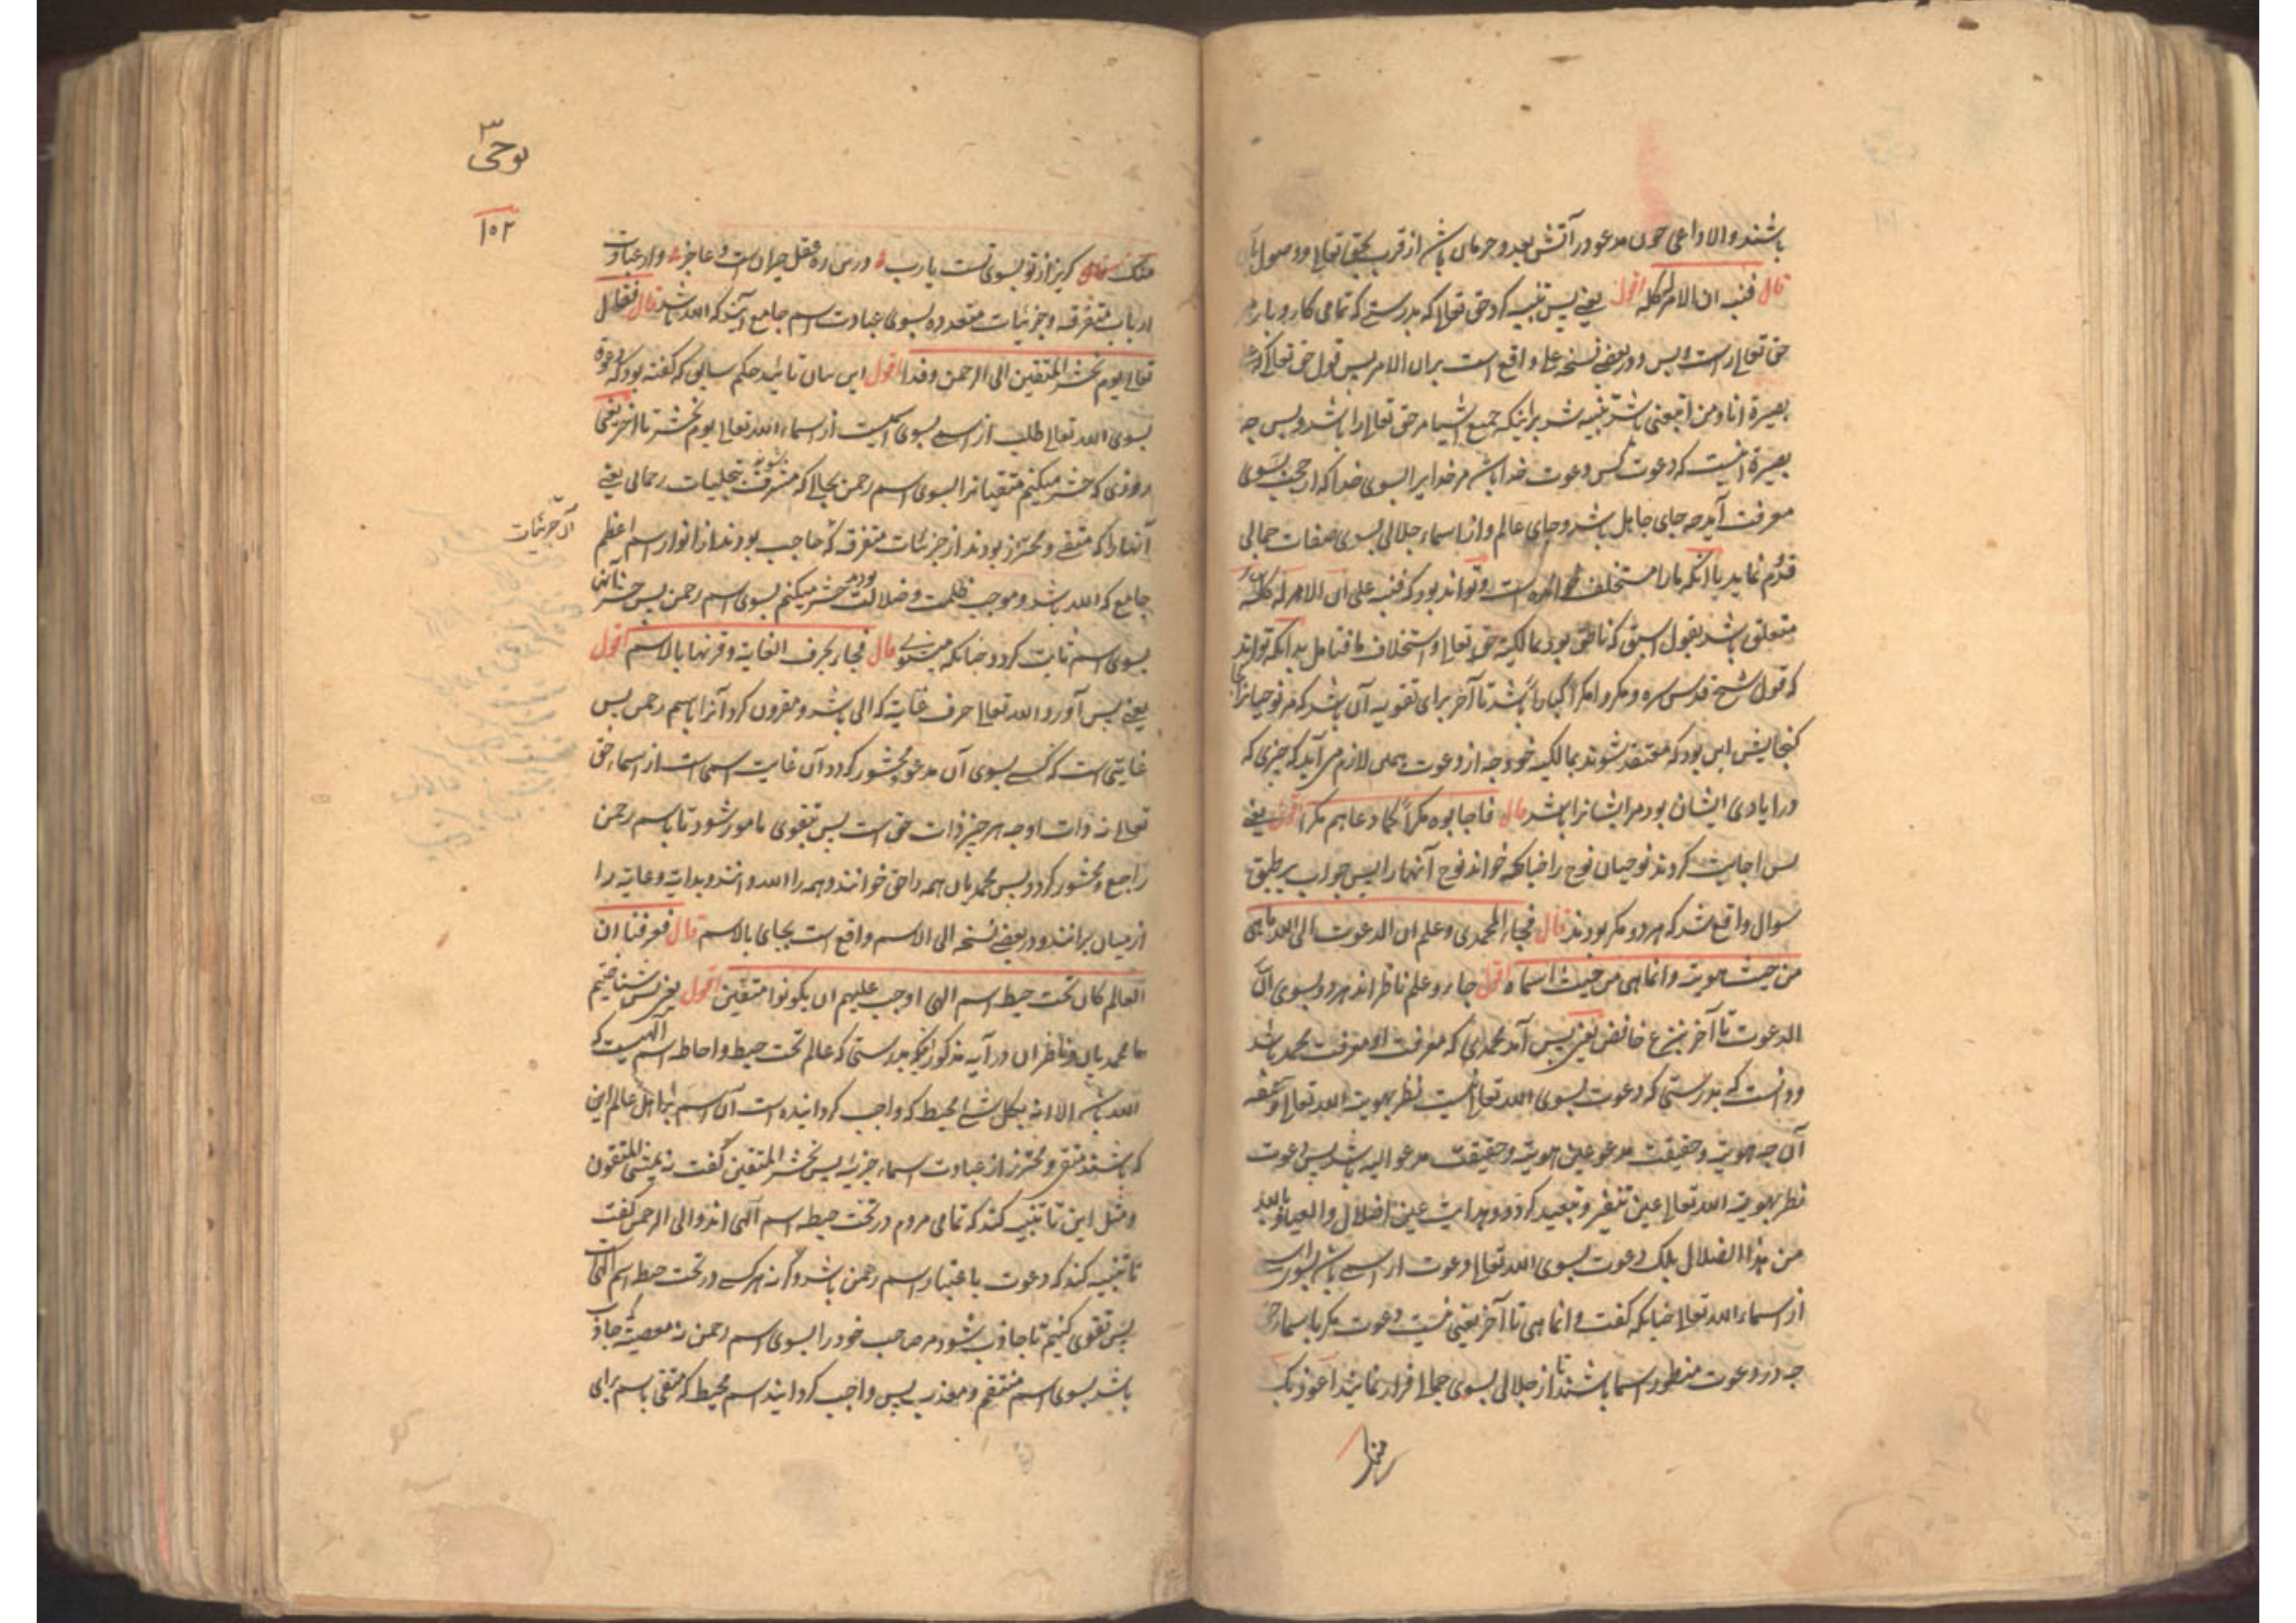 باشند والا داعی چون مدعو در آتش بعد و حرمان باشد از قرب بحق تعالی و وصول بآن
قال فنبه ان الامر له کله اقول یعنی پس تنبیه کرد حق تعالی که بدرستی که تمامی کار و بار مر
حق تعالی راست و بس و در بعضی نسخه علی واقع است بر ان الامر پس قول حق تعالی که علی
بصیرة انا ومن اتبعنی باشد تنبیه شد بر اینکه جمیع اشیا مر حق تعالی را باشد و بس چه
بصیرة آنست که دعوت کس دعوت خدا باشد مر خدا را بسوی خدا که از حجب بسوی
معرفت آید چه جای جاهل باشد و جای عالم و از اسماء جلالی بسوی صفات جمالی
قدم نماید با آنکه ما را مستخلف است و تواند بود که فنبه علی ان الامر له کله
متعلق باشد بقول اسبق که ناطق بود بمالکیت حق تعالی و استخلاف ما فتامل بدانکه تواند
که قول شیخ قدس سره ومکروا مکرا کبارا باشد تا آخر برای تقویه آن باشد که مر نوحیان را
گنجایش این بود که معتقد شوند بمالکیت خود چه از دعوت لازم می آید که چیزی که
در ایادی ایشان بود مر ایشان را باشد قال فاجابوه مکرا کما دعاهم مکرا اقول یعنی
پس اجابت کردند نوحیان نوح را چنانکه خواند نوح آنها را پس جواب بر طبق
سوال واقع شد که هر دو مکر بودند قال فجاء المحمدی وعلم ان الدعوت الی الله ما هی
من حیث هویت وانما هی من حیث اسماء اقول جاء وعلم ناظر اند هر دو بسوی ان
الدعوت تا آخر بنزع خافض یعنی پس آمد محمدی که معرفت او معرفت محمد باشد
و دانست که بدرستی که دعوت بسوی الله تعالی نیست نظر بهویت الله تعالی و حقیقة
آن چه هویت و حقیقت مدعو عین هویت و حقیقت مدعو الیه باشد پس دعوت
نظر بهویت الله تعالی عین تنفیر و تبعید گردد و هدایت عین اضلال والعیاذ بالله
من هذا الضلال بلکه دعوت بسوی الله تعالی دعوت از اسمی باشد بسوی اسمی
از اسماء الله تعالی چنانکه گفت وانما هی تا آخر یعنی نیست دعوت مگر باسماء حق
چه در دعوت منظور اسما باشند تا از جلالی بسوی جمالی فرار نمایند اعوذ بک
منک
نوحی ۳
۱۰۲
منک گریز از تو بسوی تست یارب و درین ره عقل حیران است و عاجز و از عبادت
ارباب متفرقه و جزئیات متعدده بسوی عبادت اسم جامع آیند که الله باشد قال فقال
تعالی یوم نحشر المتقین الی الرحمن وفدا اقول این بیان تائید حکم سابق که گفته بود که دعوة
بسوی الله تعالی طلب از اسمی بسوی اسمیست از اسماء الله تعالی یوم نحشر تا آخر یعنی
روزی که حشر میکنیم متقیان را بسوی اسم رحمن بحالی که مشرف شوند بتجلیات رحمانی یعنی
آنها را که متقی و محترز بودند از جزئیات متفرق که حاجب بودند از انوار اسم اعظم
آن جزئیات
جامع که الله باشد و موجب ظلمت و ضلالت بودند حشر میکنیم بسوی اسم رحمن پس حشر آنها
بسوی اسم ثابت گردد چنانکه میشنوی قال فجاء بحرف الغایة وقرنها بالاسم اقول
یعنی پس آورد الله تعالی حرف غایة که الی باشد و مقرون کرد آنرا باسم رحمن پس
غایتی است که کسی بسوی آن مدعو و محشور گردد آن غایت اسمی است از اسماء حق
تعالی نه ذات او چه هر چیز ذات حق است پس بتقوی مامور شود تا باسم رحمن
راجع و محشور گردد پس محمدیان همه را حق خوانند و همه را الله دانند و بدایه و غایه را
از میان برانند و در بعضی نسخه الی الاسم واقع است بجای بالاسم قال فعرفنا ان
العالم کان تحت حیطه اسم الهی اوجب علیهم ان یکونوا متقین اقول یعنی پس شناختیم
ما محمدیان و ناظران در آیه مذکور اینکه بدرستی که عالم تحت حیطه و احاطه اسم الهیست که
الله باشد الا انه بکل شئ محیط که واجب گردانیده است آن اسم بر اهل عالم این
که باشند متقی و محترز از عبادت اسماء جزئیه پس نحشر المتقین گفت نه یمشی المتقون
و مثل این تا تنبیه کند که تمامی مردم در تحت حیطه اسم الهی اند و الی الرحمن گفت
تا تنبیه کند که دعوت باعتبار اسم رحمن باشد وگرنه هر کسی در تحت حیطه اسم الهی است
پس تقوی کنیم تا جاذب شود مر صاحب خود را بسوی اسم رحمن نه معصیة جاذب
باشد بسوی اسم منتقم و معذب پس واجب گرداند اسم محیط که متقی باسم برای